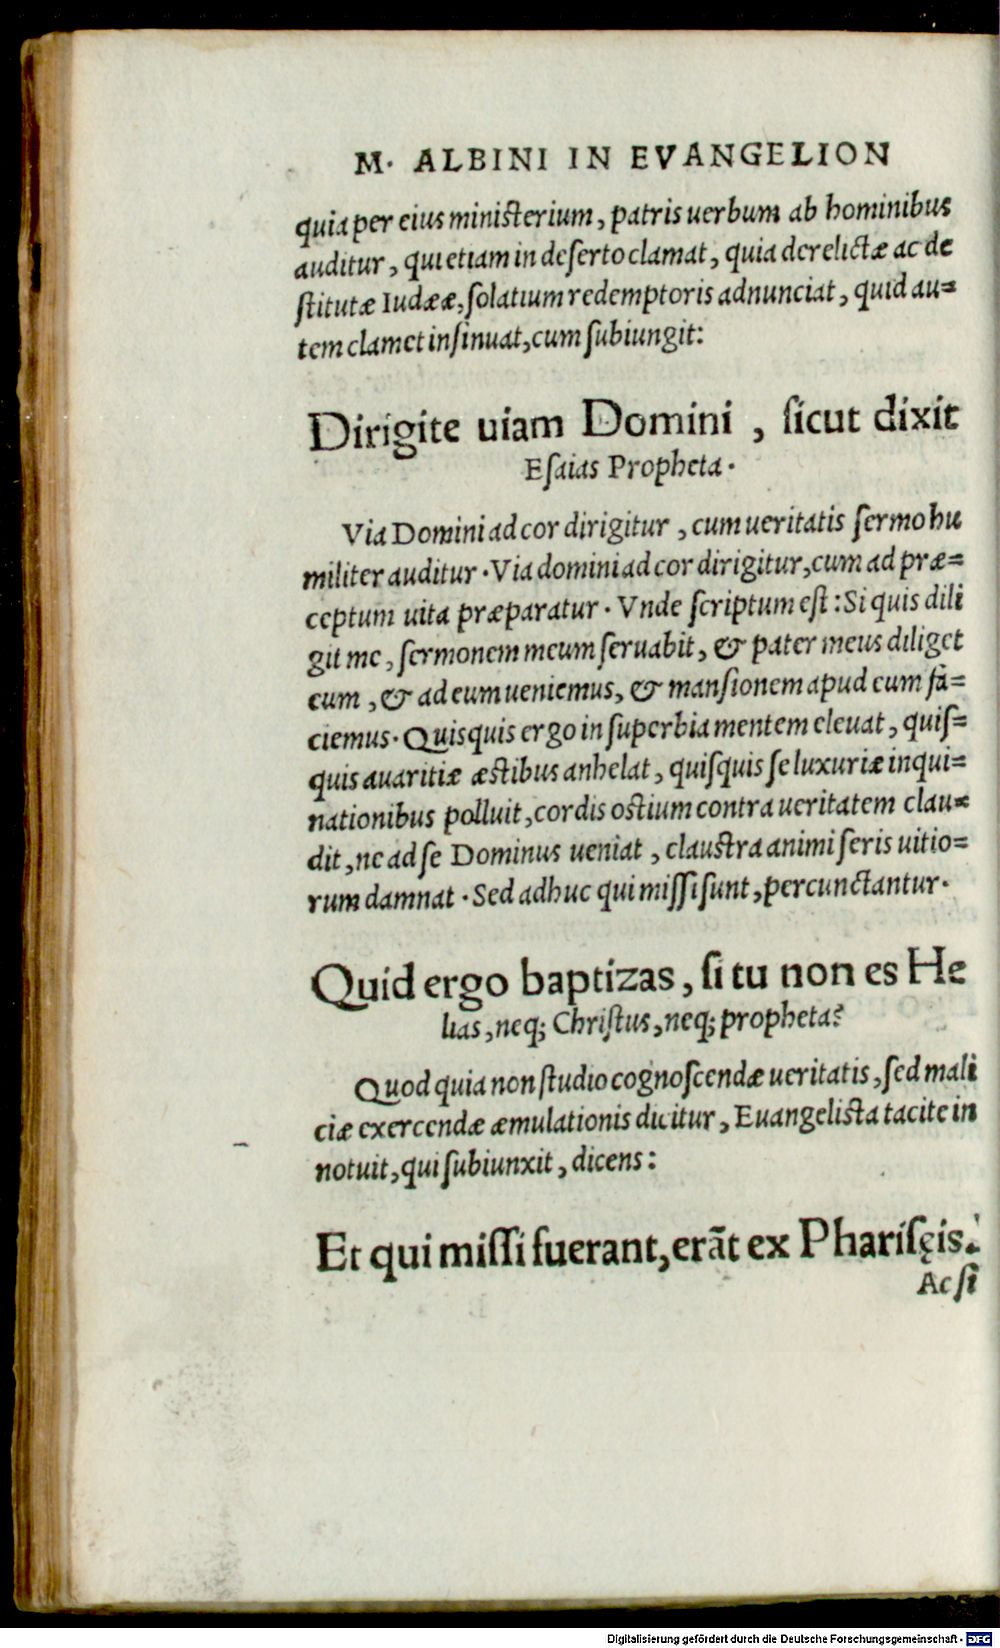 M. ALBINI IN EVANGELION
quia per eius ministerium, patris uerbum ab hominibus
auditur, qui etiam in deserto clamat, quia derelictæ ac de
stitutæ Iudææ, solatium redemptoris adnunciat, quid au=
tem clamet insinuat, cum subiungit:
Dirigite uiam Domini, sicut dixit
Esaias Propheta.
Via Domini ad cor dirigitur, cum ueritatis sermo hu
militer auditur. Via domini ad cor dirigitur, cum ad præ=
ceptum uita præparatur. Vnde scriptum est: Si quis dili
git me, sermonem meum seruabit, & pater meus diliget
eum, & ad eum ueniemus, & mansionem apud eum fa=
ciemus. Quisquis ergo in superbia mentem eleuat, quis=
quis auaritiæ æstibus anhelat, quisquis se luxuriæ inqui=
nationibus polluit, cordis ostium contra ueritatem clau=
dit, ne ad se Dominus ueniat, claustra animi seris uitio=
rum damnat. Sed adhuc qui missi sunt, percunctantur.
Quid ergo baptizas, si tu non es He
lias, neq; Christus, neq; propheta?
Quod quia non studio cognoscendæ ueritatis, sed mali
ciæ exercendæ æmulationis dicitur, Euangelista tacite in
notuit, qui subiunxit, dicens:
Et qui missi fuerant, erāt ex Pharisęis.
Ac si
Digitalisierung gefördert durch die Deutsche Forschungsgemeinschaft - DFG